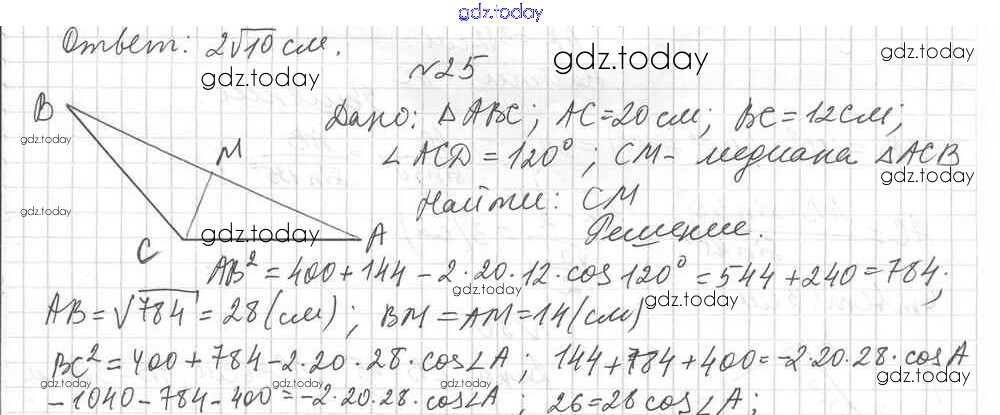 gdz.today
Ответ: 2√10 см.
gdz.today
№25
gdz.today
gdz.today
B
M
C
A
gdz.today
gdz.today
gdz.today
Дано: △ABC; AC=20см; BC=12см;
∠ACD=120°; CM- медиана △ACB
gdz.today
Найти: CM
Решение.
AB²=400+144-2·20·12·cos120°=544+240=784;
gdz.today
gdz.today
AB=√784=28(см); BM=AM=14(см)
BC²=400+784-2·20·28·cos∠A; 144+784+400=-2·20·28·cosA
gdz.today
gdz.today
gdz.today
gdz.today
-1040-784-400=-2·20·28·cos∠A; 26=28cos∠A;